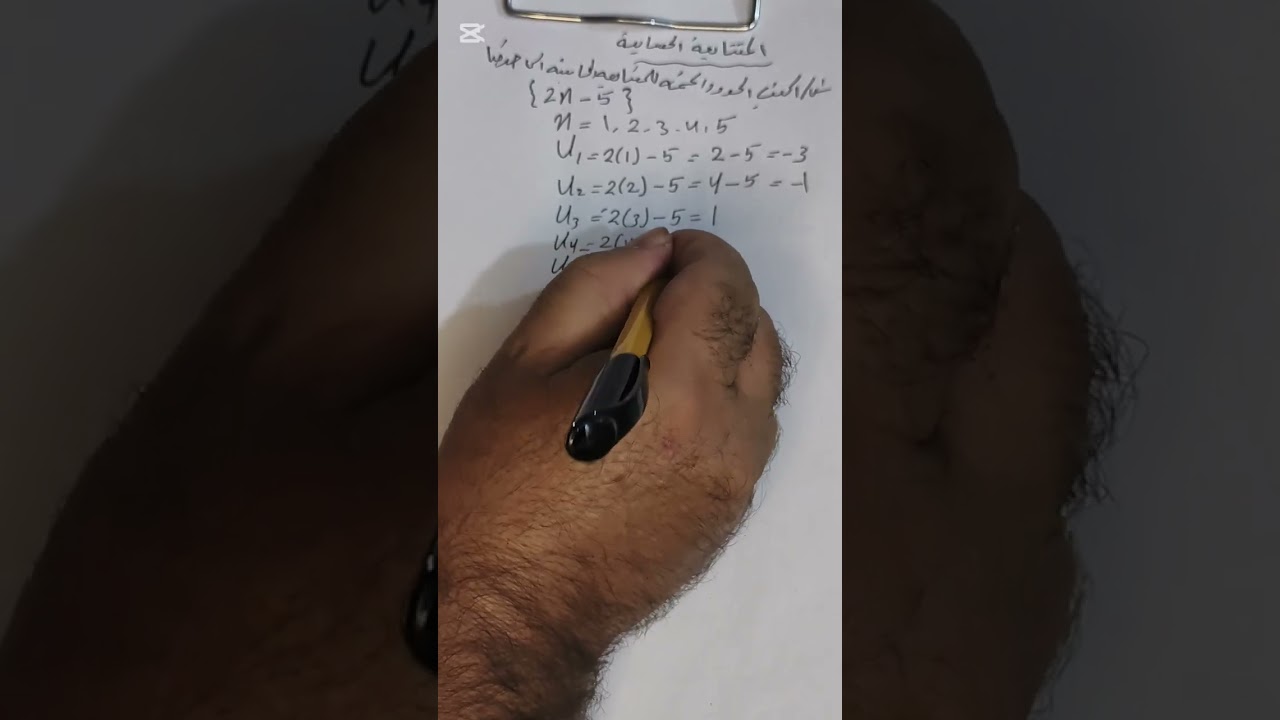 المتتابعة الحسابية
مثال / اكتب الحدود الخمسة للمتتابعة
{2n - 5}
n = 1, 2, 3, 4, 5
U1 = 2(1) - 5 = 2 - 5 = -3
U2 = 2(2) - 5 = 4 - 5 = -1
U3 = 2(3) - 5 = 1
U4 = 2(4
U